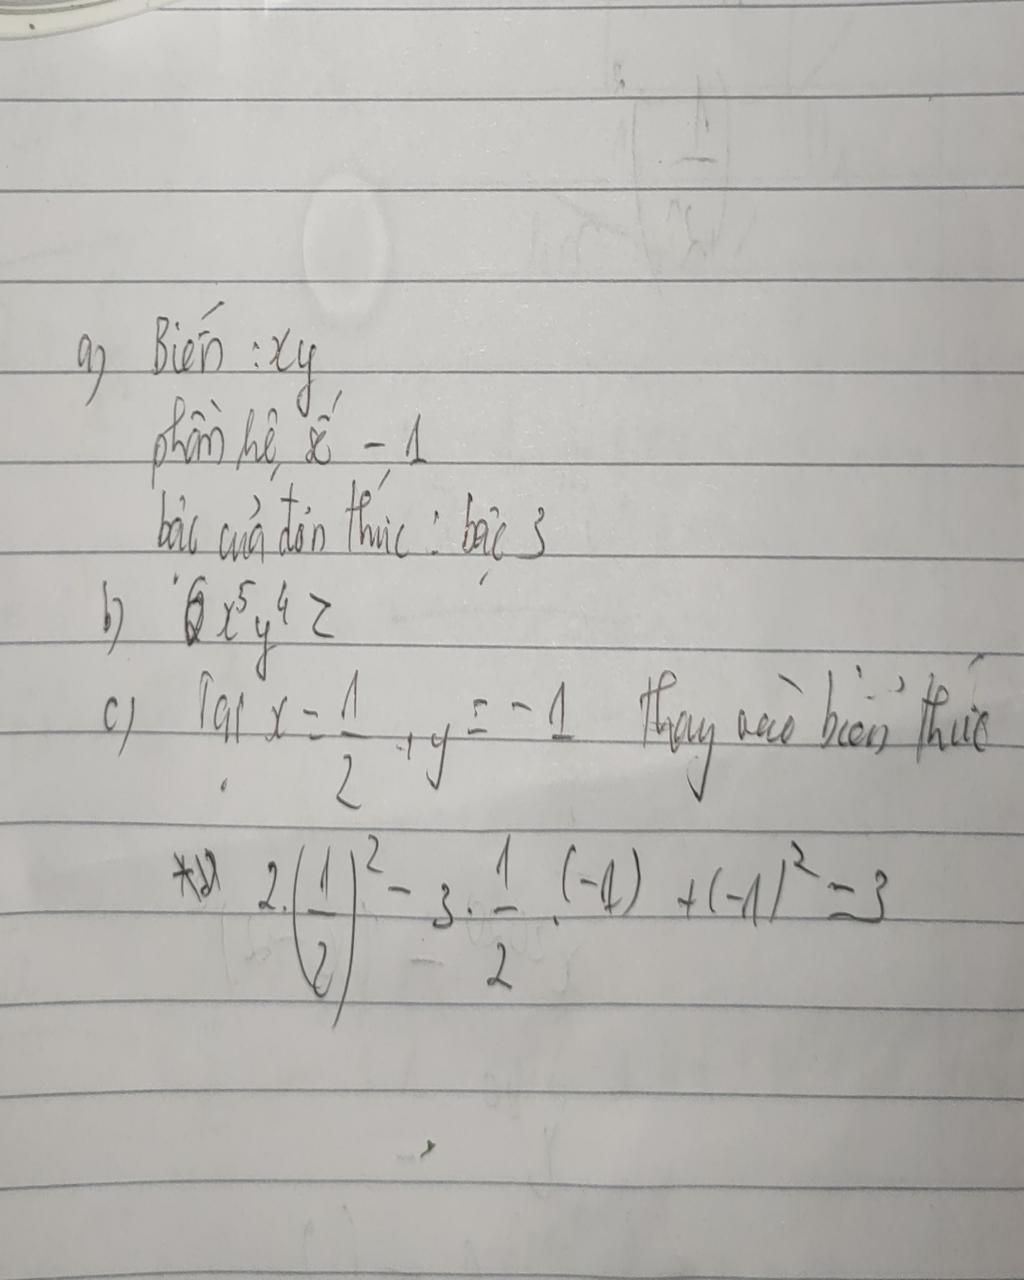 a) Biến : xy
phần hệ số - 1
bậc của đơn thức : bậc 3
b) 6x⁵y⁴z
c) Tại x = 1/2, y = -1 thay vào biển thức
2.(1/2)² - 3. 1/2 . (-1) + (-1)² = 3